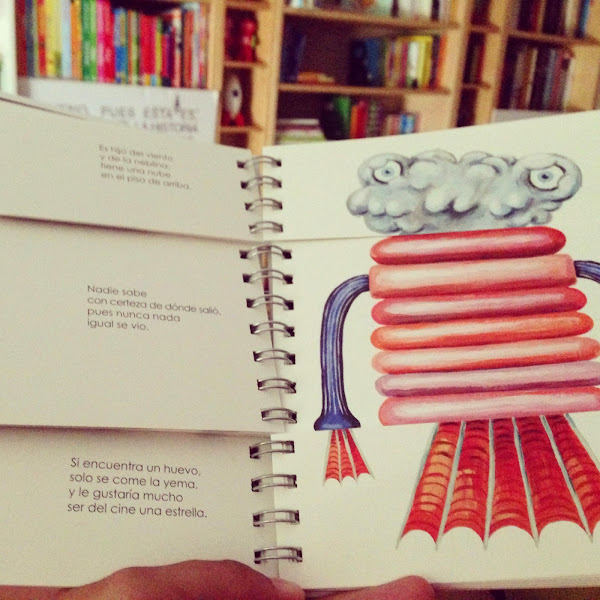 PUES ESTA ES
LA HISTORIA
Es hijo del viento
y de la neblina;
tiene una nube
en el piso de arriba.
Nadie sabe
con certeza de dónde salió,
pues nunca nada
igual se vio.
Si encuentra un huevo,
solo se come la yema,
y le gustaría mucho
ser del cine una estrella.